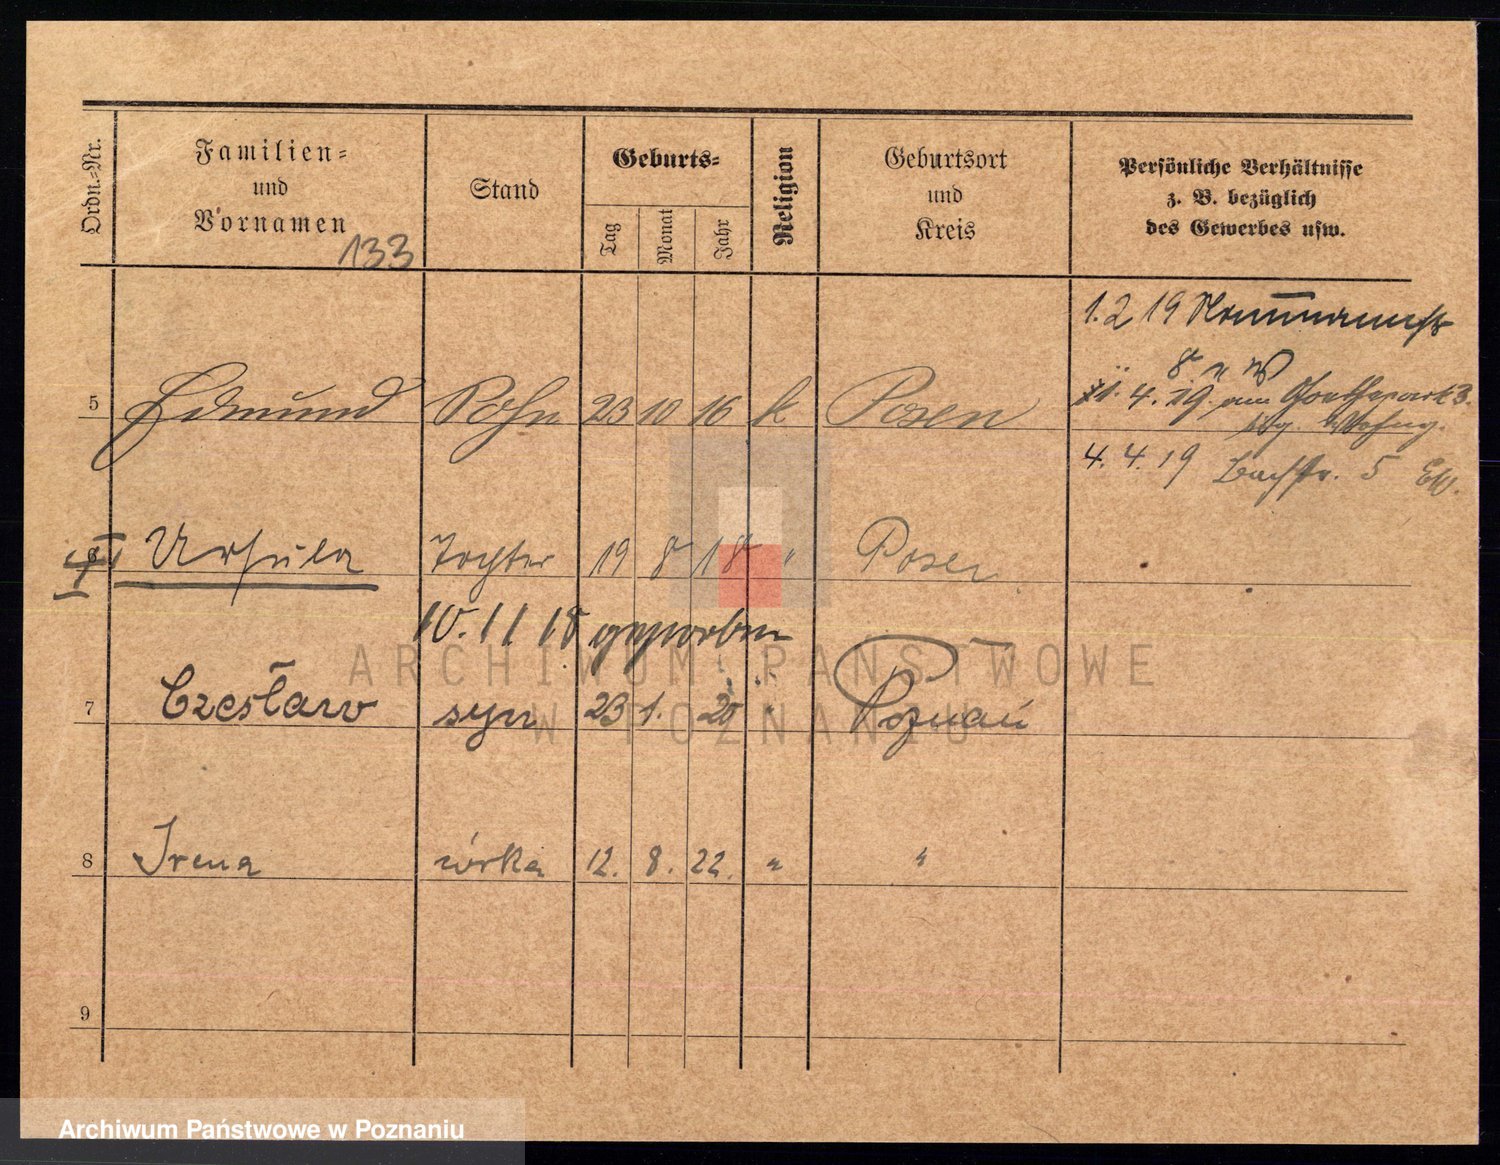 Ordn.-Nr.
Familien-
und
Vornamen
133
Stand
Geburts-
Tag
Monat
Jahr
Religion
Geburtsort
und
Kreis
Persönliche Verhältnisse
z. B. bezüglich
des Gewerbes usw.
1. 2 19
5 Edmund Sohn 23 10 16 k Posen
4. 19. am Goethepark 3.
Wohng.
4. 4. 19 Bachstr. 5
6 Ursula Tochter 19 8 18 " Posen
10. 11 18 gestorben
7 Czesław syn 23 1. 20 " Poznań
8 Irena córka 12. 8. 22. " "
9
ARCHIWUM PAŃSTWOWE
W POZNANIU
Archiwum Państwowe w Poznaniu